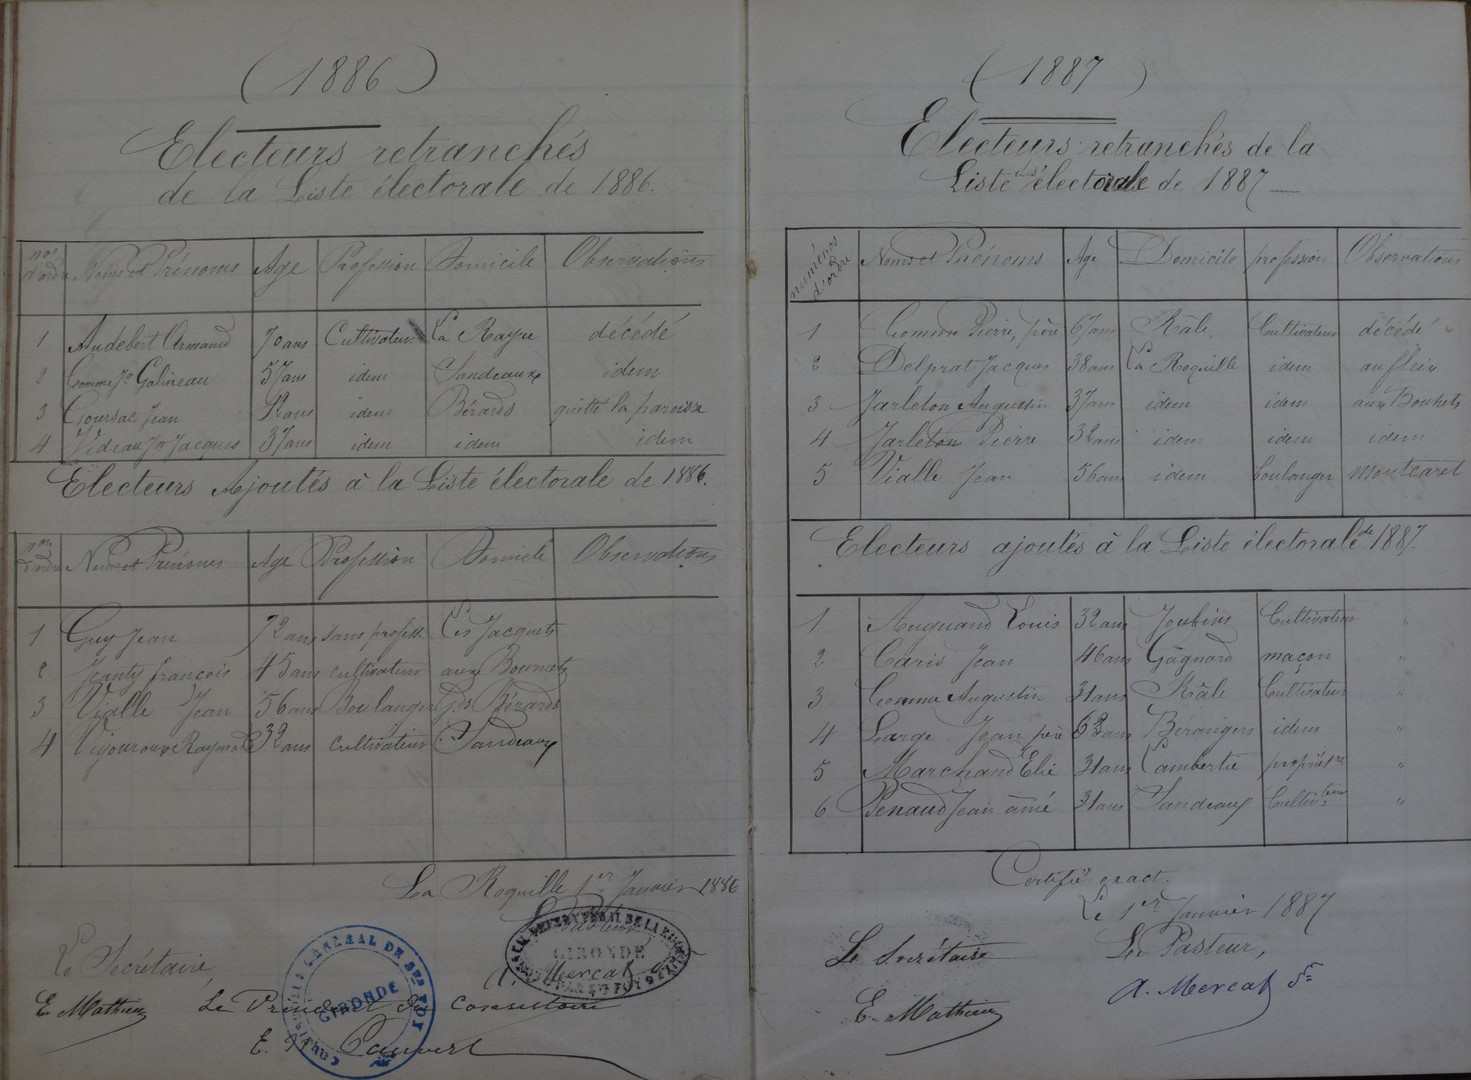 (1886)
Electeurs retranchés
de la Liste électorale de 1886.
nos d'ordre Noms et Prénoms Age Profession Domicile Observations
1 Audebert Armand 70 ans Cultivateur La Rayre décédé
2 Comme Jn Galineau 57 ans idem Sandeaux idem
3 Goursac Jean ans idem Bérards quitte la paroisse
4 Videau Jn Jacques 37 ans idem idem idem
Electeurs Ajoutés à la Liste électorale de 1886.
nos d'ordre Noms et Prénoms Age Profession Domicile Observations
1 Guy Jean 72 ans sans profess. Les Jacquets
2 Jeanty françois 45 ans cultivateur aux Bournets
3 Vialle Jean 56 ans Boulanger Bérards
4 Vigouroux Raymond 32 ans cultivateur Sandeaux
La Roquille 1er Janvier 1886
Le Pasteur
Le Secrétaire, A. Mercat
E. Mathieu Le Président du Consistoire
E. Cauvert
CONSISTOIRE GÉNÉRAL DE STE FOY
GIRONDE
GIRONDE
(1887)
Electeurs retranchés de la
Liste électorale de 1887
numéros d'ordre Noms et Prénoms Age Domicile profession Observations
1 Comme Pierre, père 67 ans Râle Cultivateur décédé "
2 Delprat Jacques 38 ans La Roquille idem au fleix
3 Jarleton Augustin 37 ans idem idem aux Bouhets
4 Jarleton Pierre 32 ans idem idem idem
5 Vialle Jean 56 ans idem boulanger Montcaret
Electeurs ajoutés à la Liste électorale de 1887.
1 Auguand Louis 32 ans Joufins Cultivateur "
2 Caris Jean 46 ans Gâgnard maçon "
3 Comme Augustin 31 ans Râle Cultivateur "
4 Large Jean père 62 ans Bérangers idem "
5 Marchand Elie 31 ans Lambertie propriétre "
6 Penaud Jean aîné 31 ans Sandeaux Cultivteur "
Certifié exact.
Le 1er Janvier 1887
Le Secrétaire Le Pasteur,
E. Mathieu A. Mercat Sr